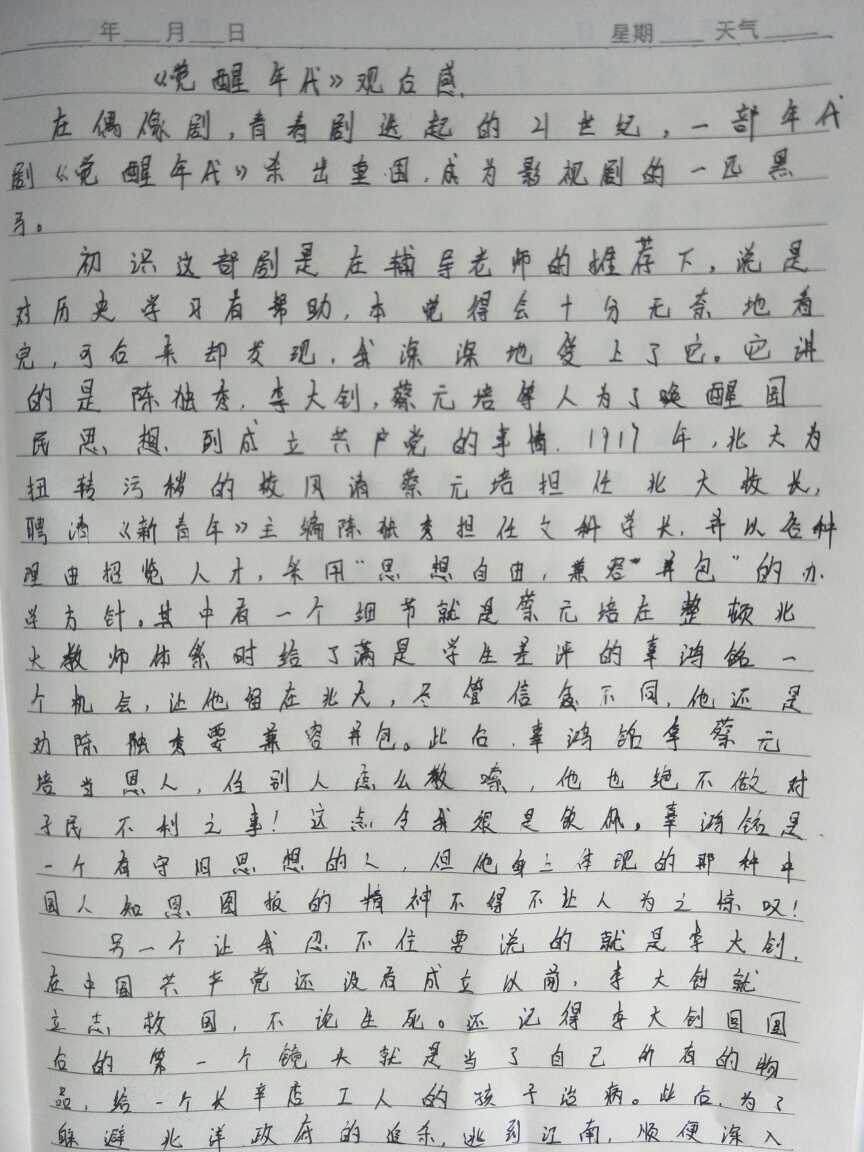 年 月 日 星期 天气
《觉醒年代》观后感.
在偶像剧,青春剧迭起的21世纪,一部年代
剧《觉醒年代》杀出重围.成为影视剧的一匹黑
马。
初识这部剧是在辅导老师的推荐下,说是
对历史学习有帮助,本觉得会十分无奈地看
完,可后来却发现,我深深地爱上了它。它讲
的是陈独秀.李大钊,蔡元培等人为了唤醒国
民思想.到成立共产党的事情.1917年,北大为
扭转污秽的校风请蔡元培担任北大校长,
聘请《新青年》主编陈独秀担任文科学长.并以各种
理由招览人才,采用"思想自由,兼容"并包"的办
学方针。其中有一个细节就是蔡元培在整顿北
大教师体系时给了满是学生差评的辜鸿铭一
个机会,让他留在北大,尽管信念不同,他还是
劝陈独秀要兼容并包。此后.辜鸿铭拿蔡元
培当恩人,任别人怎么教唆,他也绝不做对
于民不利之事!这点令我很是钦佩。辜鸿铭是
一个有守旧思想的人,但他身上体现的那种中
国人知恩图报的精神不得不让人为之惊叹!
另一个让我忍不住要说的就是李大钊.
在中国共产党还没有成立以前,李大钊就
立志救国,不论生死。还记得李大钊回国
后的第一个镜头就是当了自己所有的物
品,给一个长辛店工人的孩子治病。此后.为了
躲避北洋政府的追杀,逃到江南,顺便深入